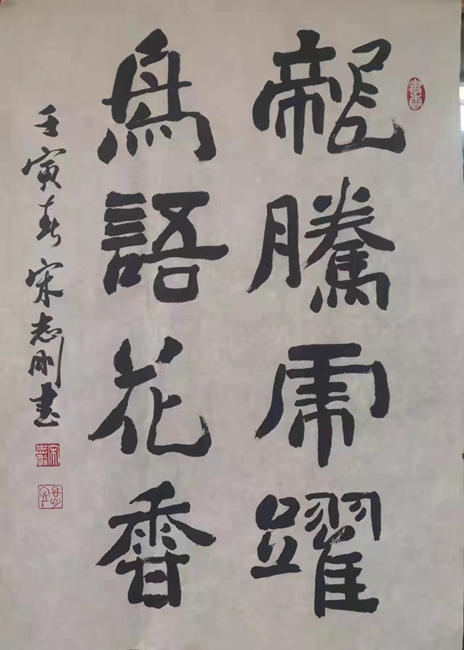 龍騰虎躍
鳥語花香
壬寅春宋志刚书